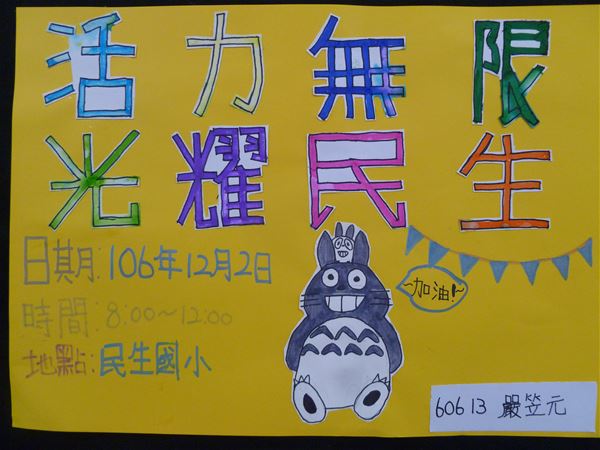 活力無限
光耀民生
日期月:106年12月2日
時間:8:00~12:00
地點:民生國小
~加油!~
60613 嚴笠元